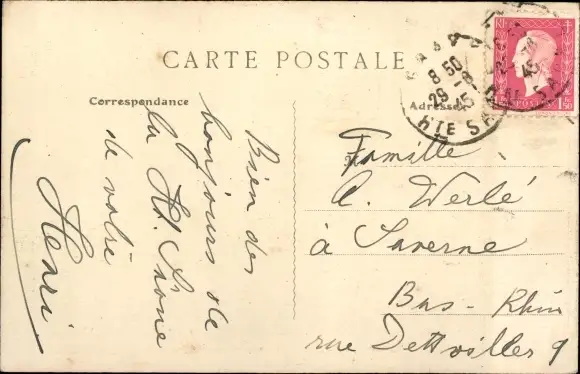 CARTE POSTALE
Correspondance
Adresse
8 50
29 - 8
45
HTE SA
1F50
Bien des
bonjours de
la Hte Saône
de votre
Henri
Famille
A. Werlé
à Saverne
Bas-Rhin
rue Dettwiller 9